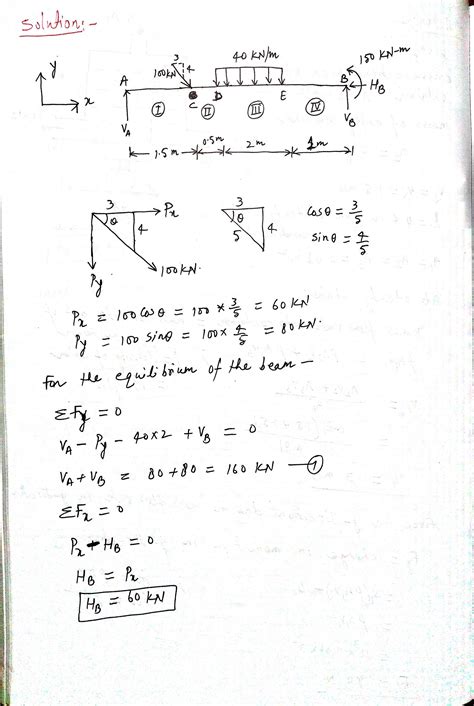 Solution:-
y
x
3
4
100KN
40 KN/m
150 KN-m
A
C
D
E
B
H_B
I
II
III
IV
V_A
V_B
1.5m
0.5m
2m
1m
3
θ
4
P_x
P_y
100KN.
3
θ
5
4
cosθ = 3/5
sinθ = 4/5
P_x = 100 cosθ = 100 × 3/5 = 60 KN
P_y = 100 sinθ = 100 × 4/5 = 80 KN.
For the equilibrium of the beam -
ΣF_y = 0
V_A - P_y - 40×2 + V_B = 0
V_A + V_B = 80 + 80 = 160 KN — 1
ΣF_x = 0
P_x - H_B = 0
H_B = P_x
H_B = 60 KN